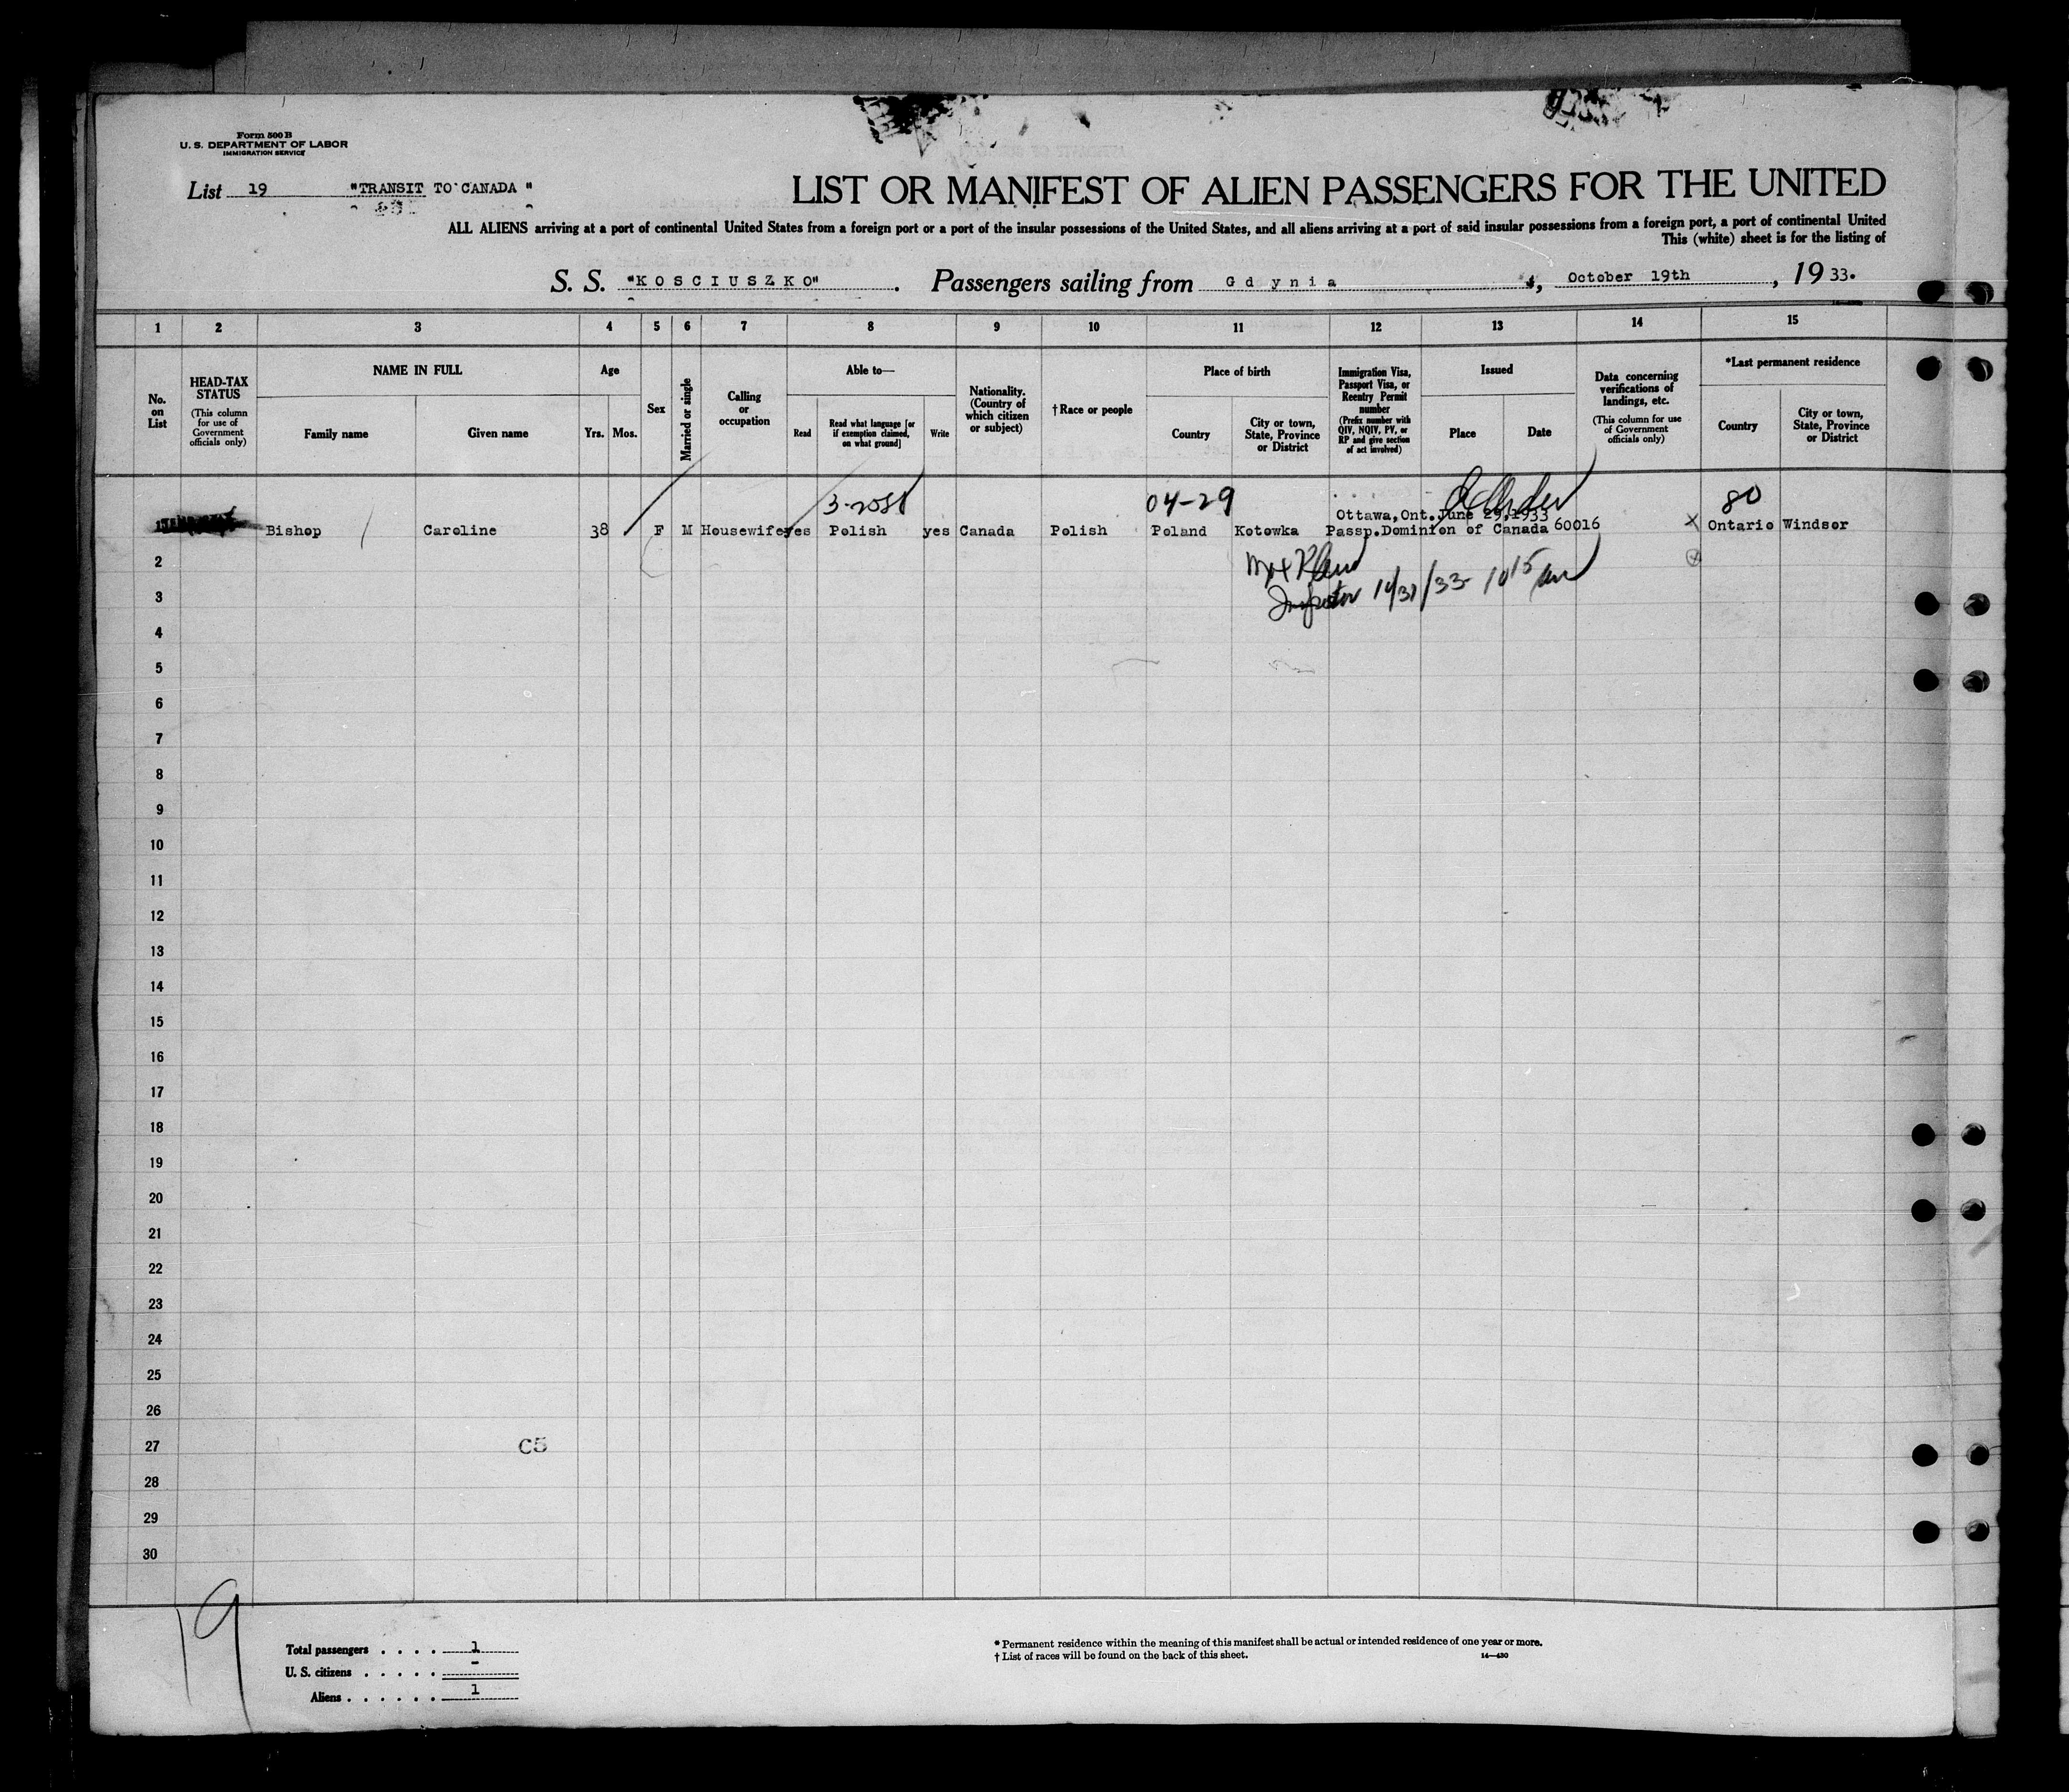 Form 500 B
U. S. DEPARTMENT OF LABOR
IMMIGRATION SERVICE
List 19 "TRANSIT TO CANADA "
LIST OR MANIFEST OF ALIEN PASSENGERS FOR THE UNITED
ALL ALIENS arriving at a port of continental United States from a foreign port or a port of the insular possessions of the United States, and all aliens arriving at a port of said insular possessions from a foreign port, a port of continental United
This (white) sheet is for the listing of
S. S. "KOSCIUSZKO". Passengers sailing from Gdynia, October 19th, 1933.
1 2 3 4 5 6 7 8 9 10 11 12 13 14 15
No. on List
HEAD-TAX STATUS (This column for use of Government officials only)
NAME IN FULL
Family name Given name
Age
Yrs. Mos.
Sex
Married or single
Calling or occupation
Able to—
Read Read what language [or if exemption claimed, on what ground] Write
Nationality. (Country of which citizen or subject)
†Race or people
Place of birth
Country City or town, State, Province or District
Immigration Visa, Passport Visa, or Reentry Permit number (Prefix number with QIV, NQIV, PV, or RP and give section of act involved)
Issued
Place Date
Data concerning verifications of landings, etc. (This column for use of Government officials only)
*Last permanent residence
Country City or town, State, Province or District
04-29 80
Ottawa, Ont. June 29, 1933
Bishop Caroline 38 F M Housewife yes Polish yes Canada Polish Poland Kotowka Passp. Dominion of Canada 60016 X Ontario Windsor
2
Inspector 10/31/33 10 15 am
3
4
5
6
7
8
9
10
11
12
13
14
15
16
17
18
19
20
21
22
23
24
25
26
27 C5
28
29
30
19
Total passengers . . . . 1
U. S. citizens . . . . . -
Aliens . . . . . . 1
* Permanent residence within the meaning of this manifest shall be actual or intended residence of one year or more.
† List of races will be found on the back of this sheet. 14—430